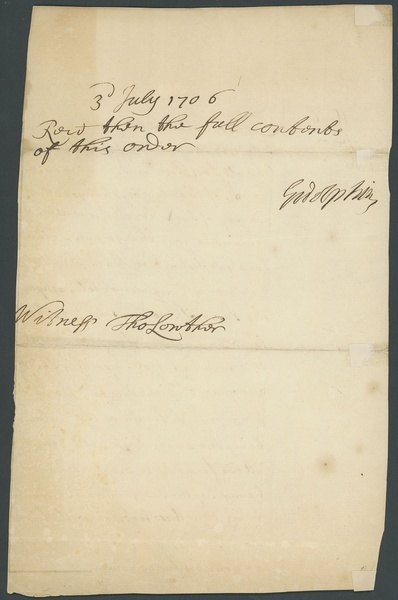 3d July 1706
Recd then the full contents
of this order
Godolphin
Witness Tho Lowther